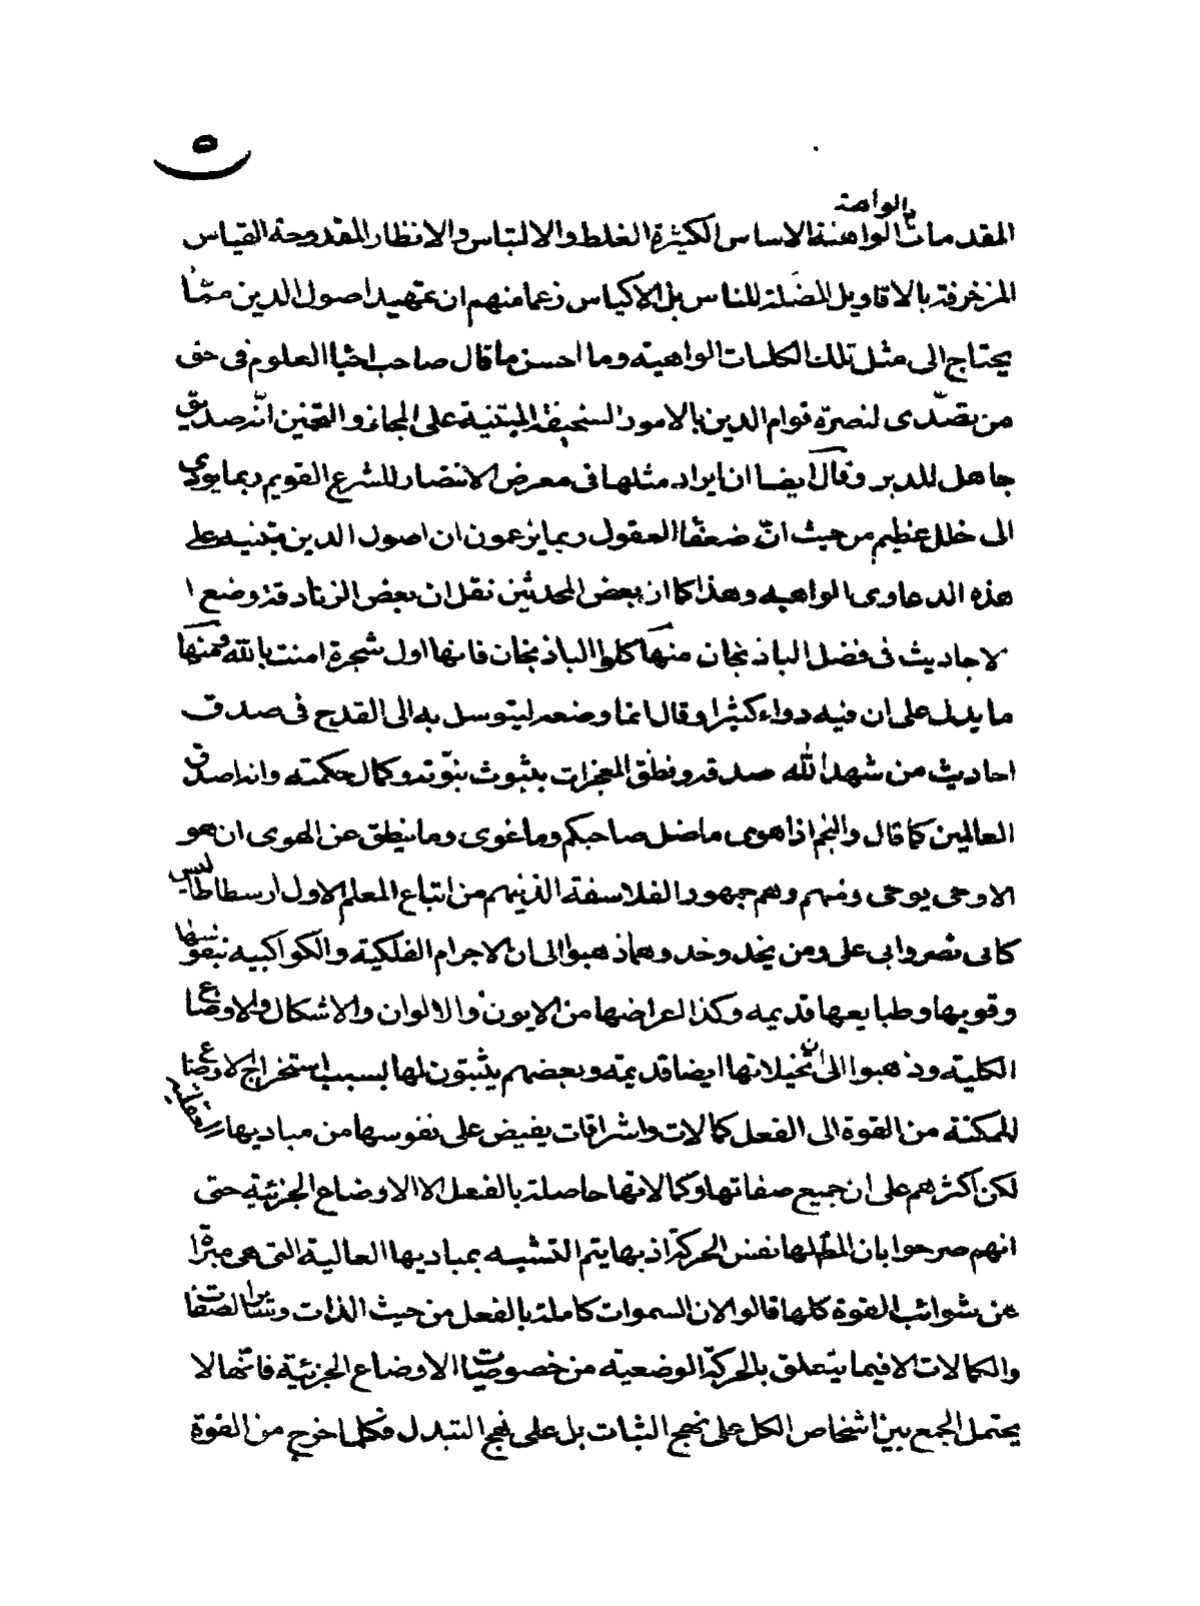 ٥
الواهية
المقدمات الواهنة الاساس الكثيرة الغلط والالتباس والانظار المقدوحة القياس
المزخرفة بالاقاويل المضلة للناس بل الاكياس زعما منهم ان تمهيد اصول الدين مما
يحتاج الى مثل تلك الكلمات الواهية وما احسن ما قال صاحب احيا العلوم فى حق
من تصّدى لنصرة قوام الدين بالامور السخيفة المبتنية على المجاز والتخمين انّه صديق
جاهل للدين وقال ايضا ان ايراد مثلها فى معرض الانتصار للشرع القويم ربما يودى
الى خلل عظيم من حيث انّ ضعفا العقول ربما يزعمون ان اصول الدين مبتنيه على
هذه الدعاوى الواهيه وهذا كما ان بعض المحدثين نقل ان بعض الزنادقة وضع ا
لاحاديث فى فضل الباذنجان منها كلوا الباذنجان فانها اول شجرة امنت بالله ومنها
ما يدل على ان فيه دواء كثيرا وقال انما وضعه ليتوسل به الى القدح فى صدق
احاديث من شهد الله صدقه ونطق المعجزات بثبوت نبوّته وكمال حكمته وانه اصدق
العالمين كما قال والنجم اذا هوى ما ضل صاحبكم وما غوى وما ينطق عن الهوى ان هو
الا وحى يوحى ومنهم وهم جمهور الفلاسفة الذينهم من اتباع المعلم الاول ارسطاطاليس
كابى نصر وابى على ومن يحذو حذوهما ذهبوا الى ان الاجرام الفلكية والكواكبيه بنفوسها
وقويها وطبايعها قديمه وكذا اعراضها من الايون والالوان والاشكال والاوضاع
الكلية وذهبوا الى ان تخيلاتها ايضا قديمة وبعضهم يثبتون لها بسبب استخراج الاوضاع
الممكنة من القوة الى الفعل كمالات واشراقات يفيض على نفوسها من مباديها
لكن اكثرهم على ان جميع صفاتها وكمالاتها حاصلة بالفعل الا الاوضاع الجزئية حتى
انهم صرحوا بان المط لها نفس الحركة اذ بها يتم التشبه بمباديها العالية التى هى مبراة
عن شوائب القوة كلها قالوا لان السموات كاملة بالفعل من حيث الذات وساير الصفات
والكمالات الا فيما يتعلق بالحركة الوضعيه من خصوصيات الاوضاع الجزئية فانها لا
يحتمل الجمع بين اشخاص الكل على نهج الثبات بل على نهج التبدل فكلما اخرج من القوة